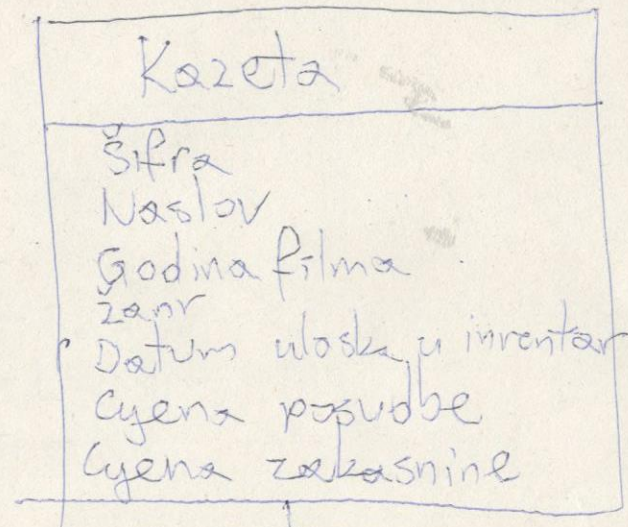 Kazeta
Šifra
Naslov
Godina filma
Žanr
Datum uloska u inventar
Cijena posudbe
Cijena zakasnine